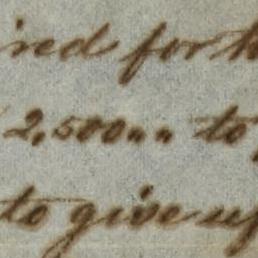 ired for
2,500.. to
to give up